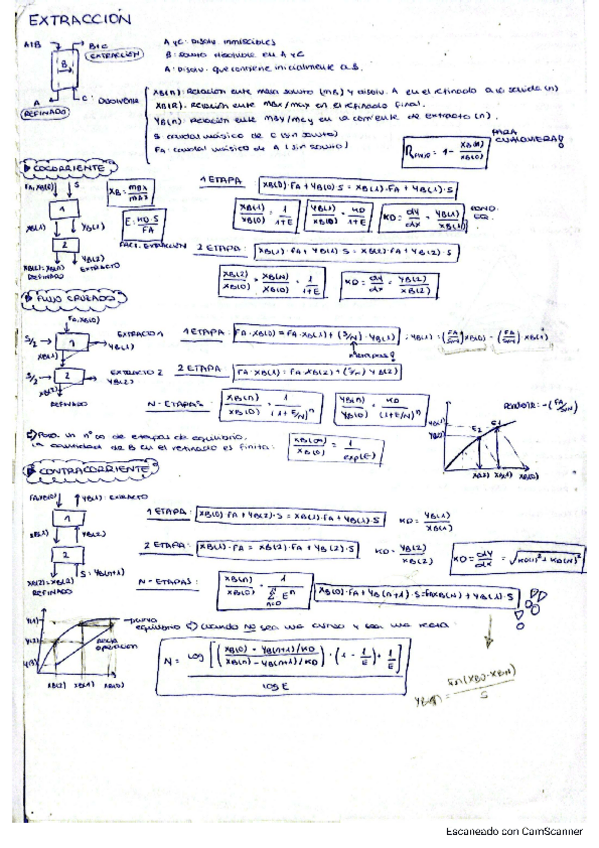 EXTRACCIÓN
A+B
B+C
EXTRACCIÓN
B
A
REFINADO
C: Disolvente
A y C: Disolv. inmiscibles
B: soluto disoluble en A y C
A: Disolv. que contiene inicialmente a B.
XB(n): Relación entre masa soluto (mB) y disolv. A en el refinado a la salida (n)
XB(N): Relación entre mBx/mAx en el refinado final.
YB(n): Relación entre mBy/mCy en la corriente de extracto (n).
S caudal másico de C (sin soluto)
FA: caudal másico de A (sin soluto)
= 1 - XB(N)/XB(0)
PARA CUALQUIERA!
COCORRIENTE
FA, XB(0)
S
1
XB(1)
YB(1)
2
XB(2)=XB(N)
REFINADO
YB(2)
EXTRACTO
XB = mBx/mAx
E = KD·S/FA
FACT. EXTRACCIÓN
1 ETAPA
XB(0)·FA + YB(0)·S = XB(1)·FA + YB(1)·S
XB(1)/XB(0) = 1/1+E
YB(1)/XB(0) = KD/1+E
KD = dy/dx = YB(1)/XB(1)
COND. EQ.
2 ETAPA:
XB(1)·FA + YB(1)·S = XB(2)·FA + YB(2)·S
KD = dy/dx = YB(2)/XB(2)
FLUJO CRUZADO
FA, XB(0)
S/2
1
EXTRACTO 1
YB(1)
XB(1)
S/2
2
EXTRACTO 2
YB(2)
XB(2)
REFINADO
1 ETAPA:
FA·XB(0) = FA·XB(1) + (S/N)·YB(1)
; YB(1) = (FA/S/N) XB(0) - (FA/S/N) XB(1)
nº etapas!
2 ETAPA
FA·XB(1) = FA·XB(2) + (S/N) YB(2)
N-ETAPAS:
XB(N)/XB(0) = 1/(1+E/N)^n
YB(N)/XB(0) = KD/(1+E/N)^n
-(FA/S/N)
YB(1)
YB(2)
XB(2) XB(1) XB(0)
Para un nº ∞ de etapas de equilibrio,
la cantidad de B en el refinado es finita:
XB(∞)/XB(0) = 1/exp(E)
CONTRACORRIENTE
FA, XB(0)
YB(1): EXTRACTO
1
XB(1)
YB(2)
2
XB(2)=XB(N)
REFINADO
S, YB(n+1)
1 ETAPA:
XB(0)·FA + YB(2)·S = XB(1)·FA + YB(1)·S
KD = YB(1)/XB(1)
2 ETAPA:
KD = YB(2)/XB(2)
KD = dy/dx = √KD(1)² + KD(N)²
N-ETAPAS:
XB(N)/XB(0) = 1/Σ E^n
n=0
XB(0)·FA + YB(n+1)·S = FA XB(N) + YB(1)·S
curva
equilibrio
recta
operación
XB(2) XB(1) XB(0)
cuando NO sea una curva y sea una recta:
N = log[(XB(0) - YB(n+1)/KD / XB(n) - YB(n+1)/KD)·(1 - 1/E) + 1/E] / log E
Escaneado con CamScanner